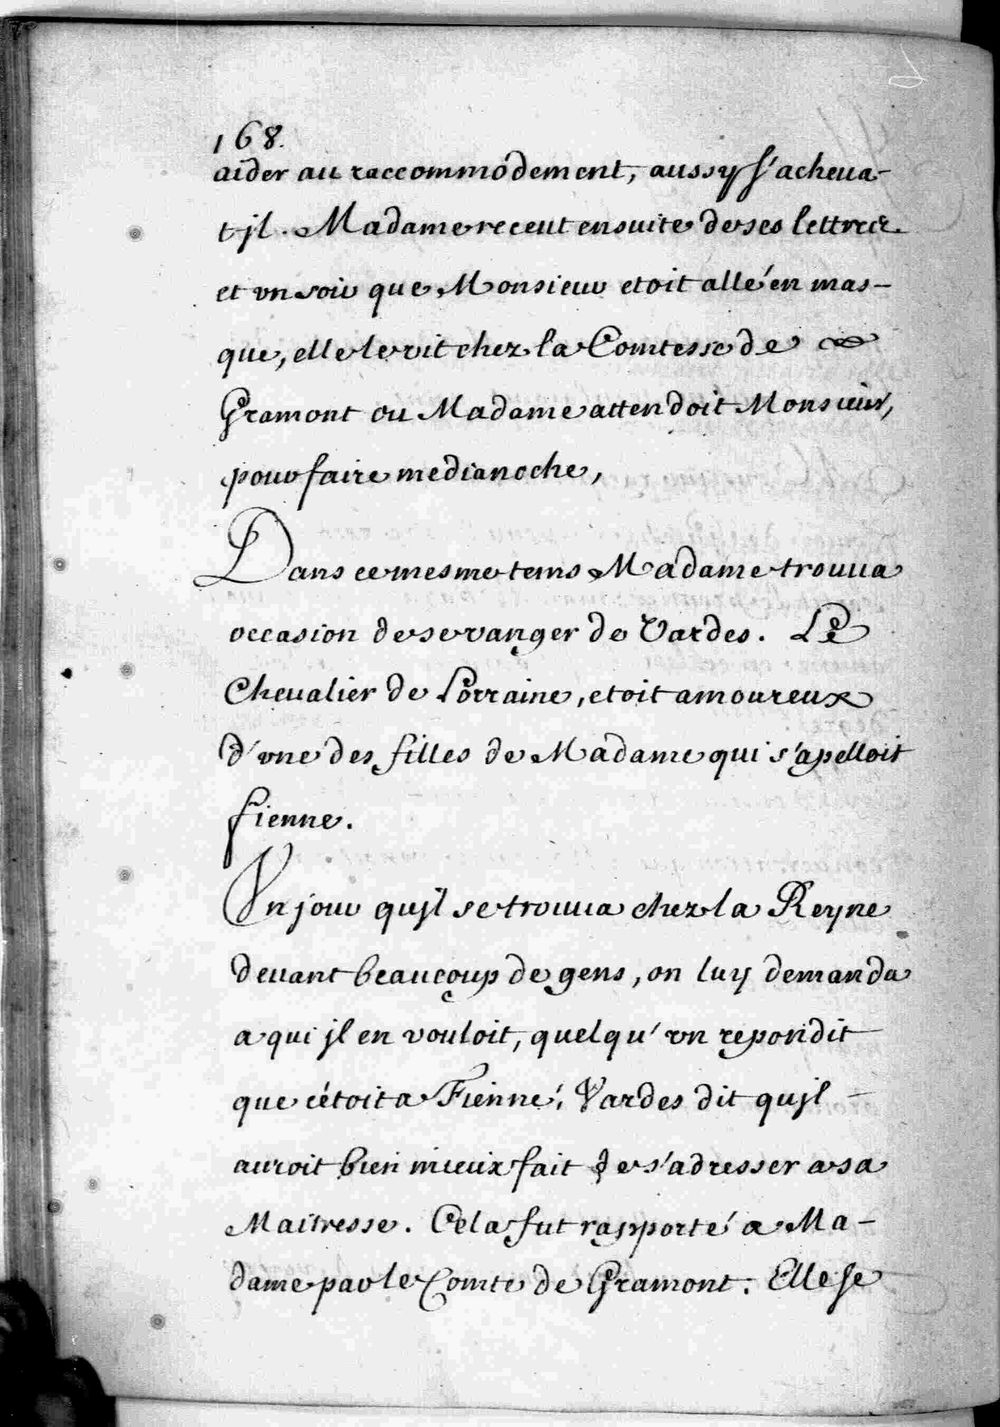 168.
aider au raccommodement, aussy s'acheua-
t-jl. Madame receut ensuite de ses lettres
et vn soir que Monsieur etoit allé en mas-
que, elle le vit chez la Comtesse de
Gramont ou Madame attendoit Monsieur,
pour faire medianoche,
Dans ce mesme tems Madame trouua
occasion de se vanger de Vardes. Le
Chevalier de Lorraine, etoit amoureux
d'vne des filles de Madame qui s'apelloit
fienne.
Vn jour qujl se trouua chez la Reyne
deuant beaucoup de gens, on luy demanda
a qui jl en vouloit, quelqu'vn repondit
que c'étoit a Fienne, Vardes dit qujl
auroit bien mieux fait de s'adresser a sa
Maitresse. Cela fut rapporté a Ma-
dame par le Comte de Gramont. Elle se